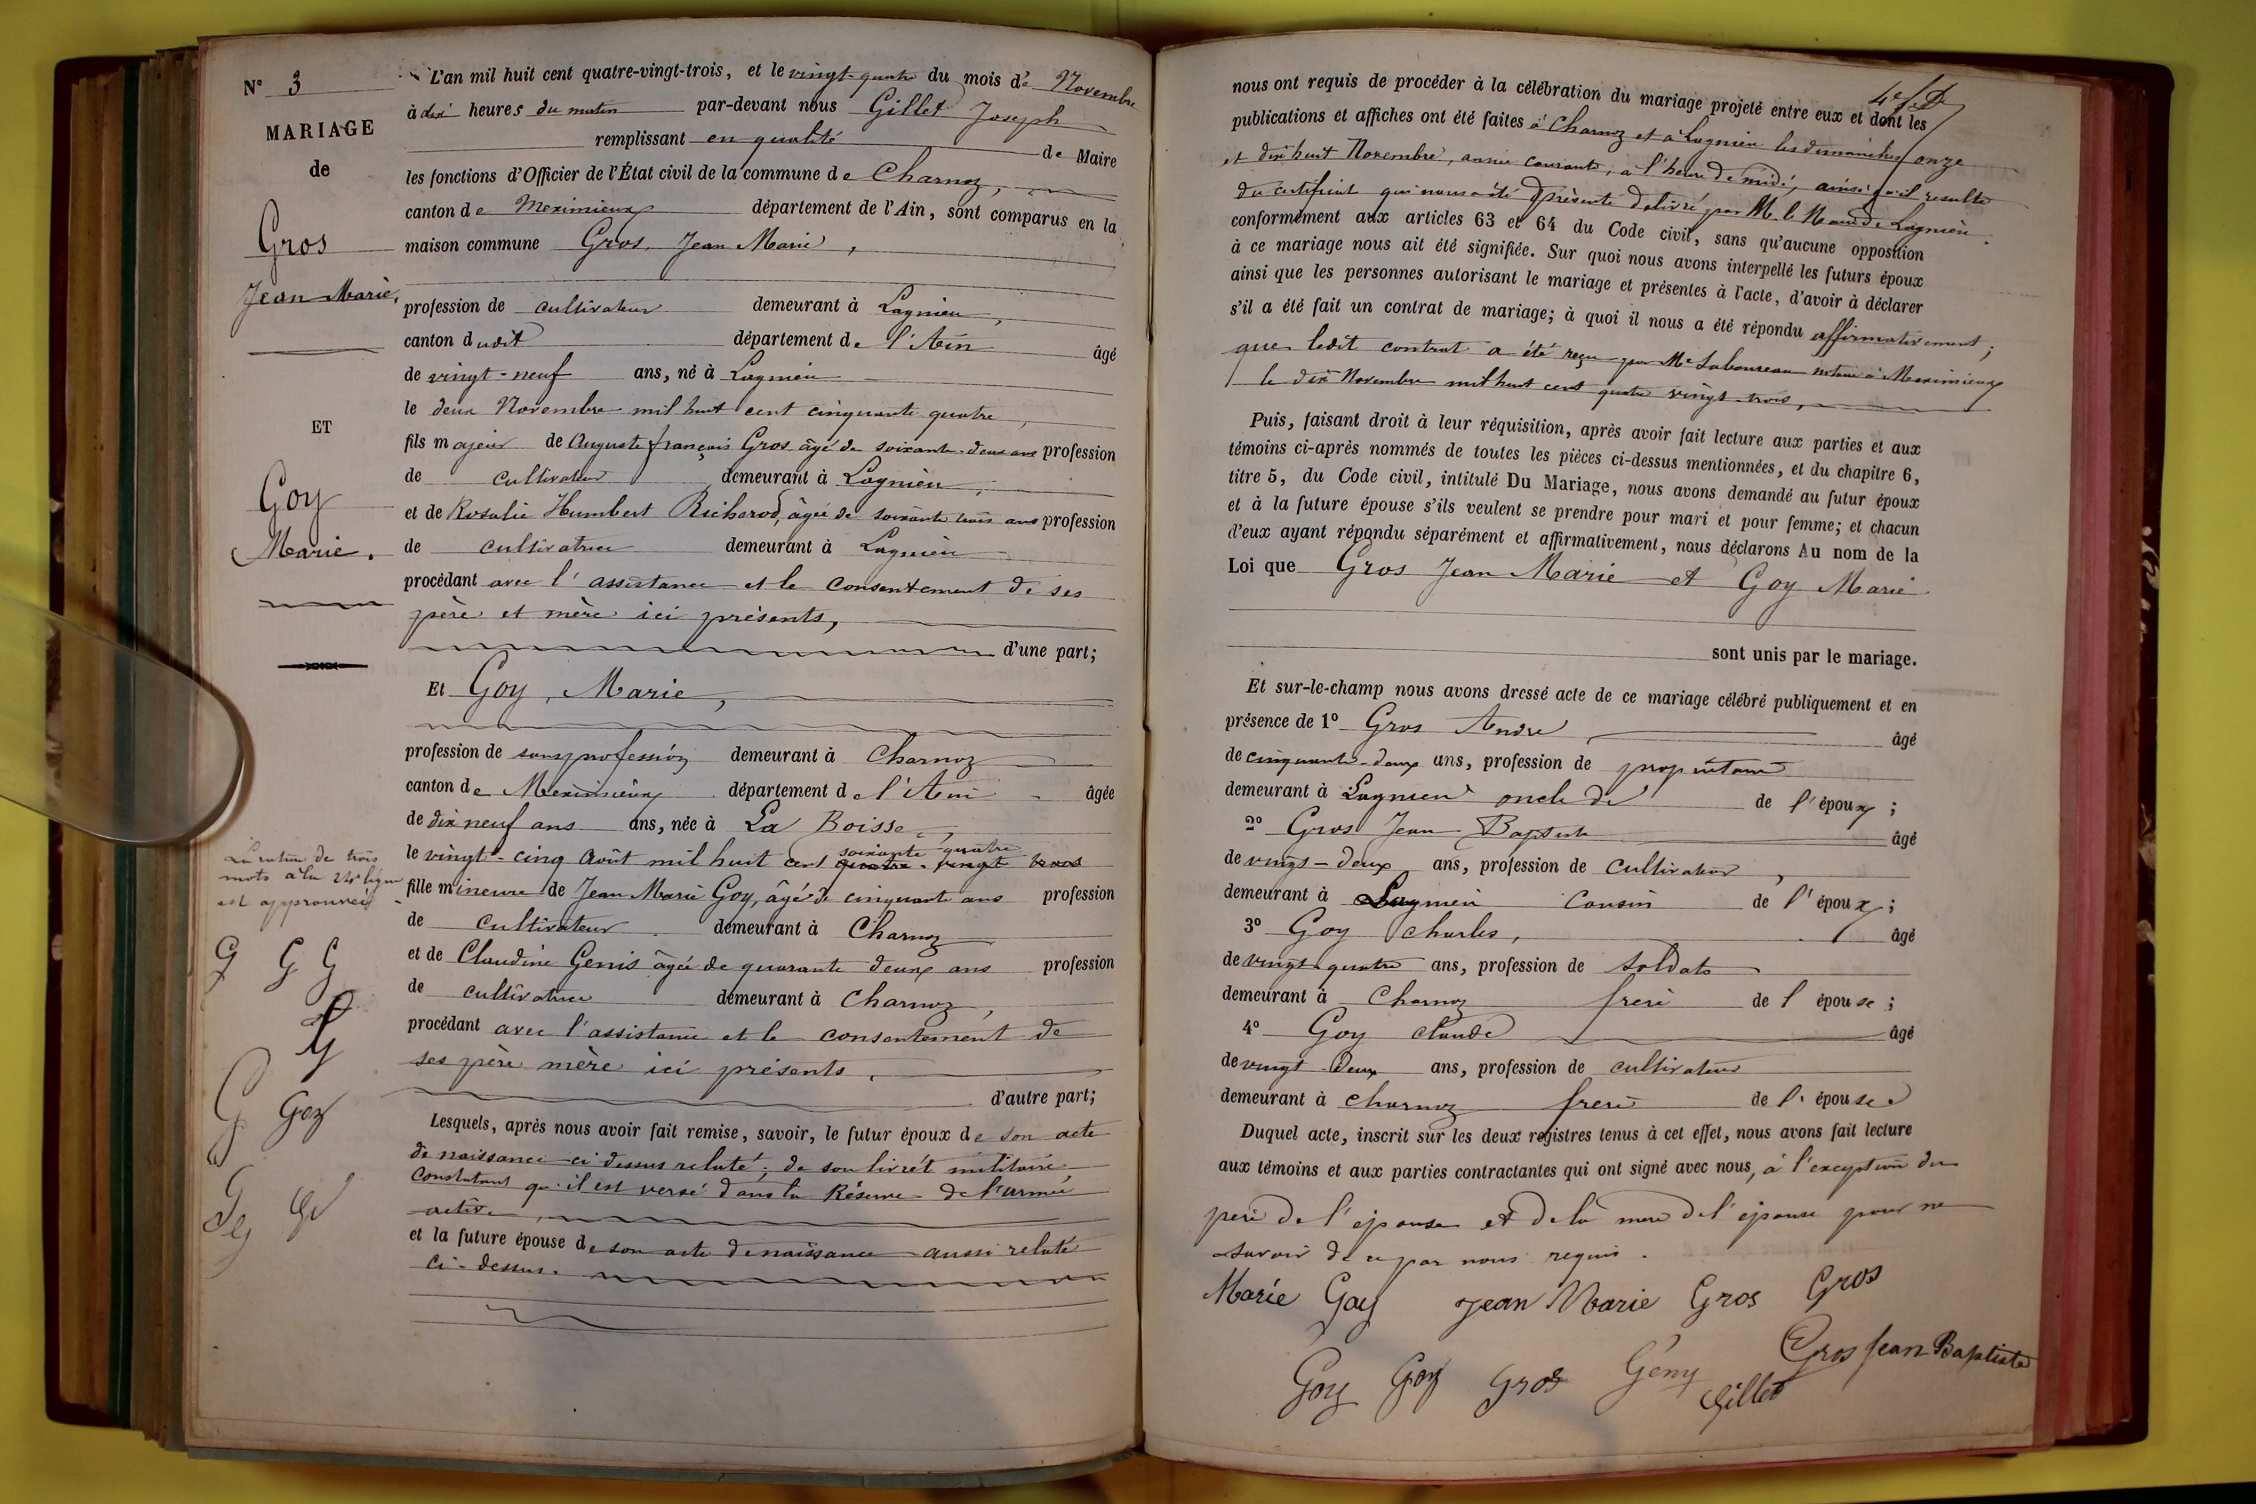 N° 3
MARIAGE
de
Gros
Jean Marie,
ET
Goy
Marie.
La rature de trois
mots à la 24e ligne
est approuvée
G G G
G
G Goy
G Gi
L'an mil huit cent quatre-vingt-trois, et le vingt-quatre du mois de Novembre
à dix heures du matin par-devant nous Gillet Joseph
remplissant en qualité de Maire
les fonctions d'Officier de l'État civil de la commune de Charnoz,
canton de Meximieux département de l'Ain, sont comparus en la
maison commune Gros, Jean Marie,
profession de cultivateur demeurant à Lagnieu,
canton dudit département de l'Ain âgé
de vingt-neuf ans, né à Lagnieu
le deux Novembre mil huit cent cinquante quatre,
fils majeur de Auguste françois Gros âgé de soixante-deux ans profession
de cultivateur demeurant à Lagnieu,
et de Rosalie Humbert Richerod, âgée de soixante trois ans profession
de cultivatrice demeurant à Lagnieu
procédant avec l'assistance et le consentement de ses
père et mère ici présents,
d'une part;
Et Goy, Marie,
profession de sans profession demeurant à Charnoz
canton de Meximieux département de l'Ain âgée
de dix neuf ans ans, née à La Boisse,
soixante-quatre
le vingt-cinq Août mil huit cent quatre-vingt trois
fille mineure de Jean Marie Goy, âgé de cinquante ans profession
de cultivateur demeurant à Charnoz
et de Claudine Genis âgée de quarante deux ans profession
de cultivatrice demeurant à Charnoz,
procédant avec l'assistance et le consentement de
ses père mère ici présents.
d'autre part;
Lesquels, après nous avoir fait remise, savoir, le futur époux de son acte
de naissance ci dessus relaté; de son livret militaire
constatant qu'il est versé dans la Réserve de l'armée
active,
et la future épouse de son acte de naissance aussi relaté
ci-dessus.
4e f. D
nous ont requis de procéder à la célébration du mariage projeté entre eux et dont les
publications et affiches ont été faites à Charnoz et à Lagnieu les dimanches onze
et dix huit Novembre, année courante, à l'heure de midi, ainsi qu'il résulte
du certificat qui nous a été présenté délivré par M. le Maire de Lagnieu.
conformément aux articles 63 et 64 du Code civil, sans qu'aucune opposition
à ce mariage nous ait été signifiée. Sur quoi nous avons interpellé les futurs époux
ainsi que les personnes autorisant le mariage et présentes à l'acte, d'avoir à déclarer
s'il a été fait un contrat de mariage; à quoi il nous a été répondu affirmativement;
que ledit contrat a été reçu par Me Laboureau notaire à Meximieux
le dix Novembre mil huit cent quatre vingt-trois,
Puis, faisant droit à leur réquisition, après avoir fait lecture aux parties et aux
témoins ci-après nommés de toutes les pièces ci-dessus mentionnées, et du chapitre 6,
titre 5, du Code civil, intitulé Du Mariage, nous avons demandé au futur époux
et à la future épouse s'ils veulent se prendre pour mari et pour femme; et chacun
d'eux ayant répondu séparément et affirmativement, nous déclarons Au nom de la
Loi que Gros Jean Marie et Goy Marie
sont unis par le mariage.
Et sur-le-champ nous avons dressé acte de ce mariage célébré publiquement et en
présence de 1° Gros Andre, âgé
de cinquante-deux ans, profession de propriétaire
demeurant à Lagnieu oncle de de l'époux;
2° Gros Jean Baptiste âgé
de vingt-deux ans, profession de cultivateur,
demeurant à Lagnieu Cousin de l'époux;
3° Goy Charles, âgé
de vingt quatre ans, profession de soldat
demeurant à Charnoz frere de l épouse;
4° Goy claude âgé
de vingt-deux ans, profession de cultivateur
demeurant à charnoz frere de l'épouse
Duquel acte, inscrit sur les deux registres tenus à cet effet, nous avons fait lecture
aux témoins et aux parties contractantes qui ont signé avec nous, à l'exception du
pere de l'épouse et de la mere de l'épouse pour ne
savoir de ce par nous requis.
Marie Goy Jean Marie Gros Gros
Goy Goy Gros Gény Gros Jean Baptiste
Gillet